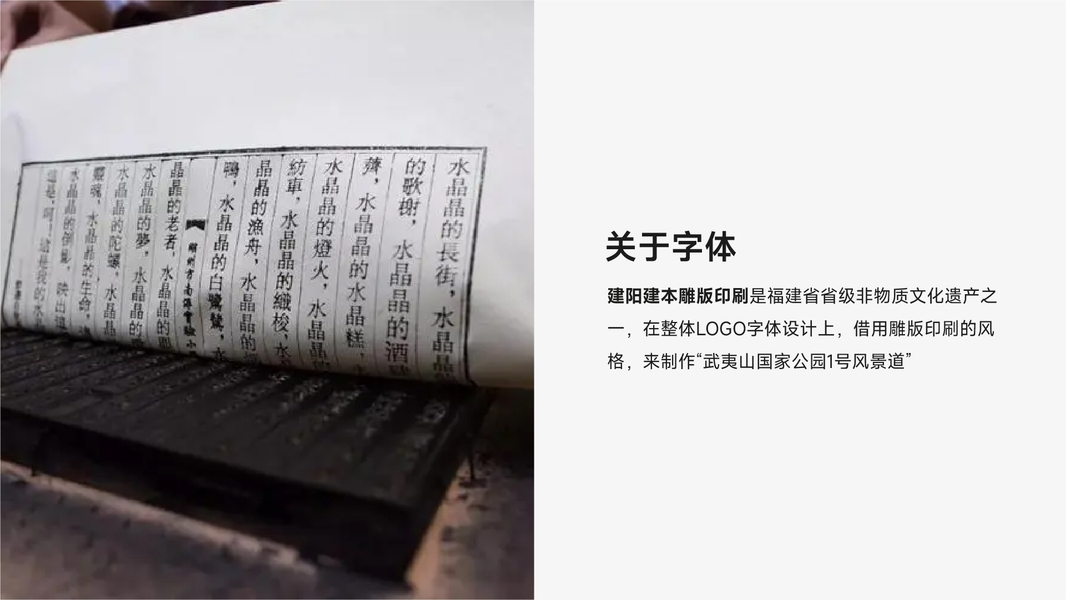 水晶晶的長街，水晶晶
的歌榭，水晶晶的酒肆
薺，水晶晶的水晶糕，水
水晶晶的燈火，水晶晶
紡車，水晶晶的織梭，水
晶晶的漁舟，水晶晶的
鴨，水晶晶的白鷺鷥，水
湖州市南潯實驗小
晶晶的老者，水晶晶的
水晶晶的夢，水晶晶的
水晶晶的陀螺，水晶晶
靈魂，水晶晶的生命，
水晶晶的倒影，映出這
這是，呵！這是我的水
关于字体
建阳建本雕版印刷是福建省省级非物质文化遗产之
一，在整体LOGO字体设计上，借用雕版印刷的风
格，来制作“武夷山国家公园1号风景道”